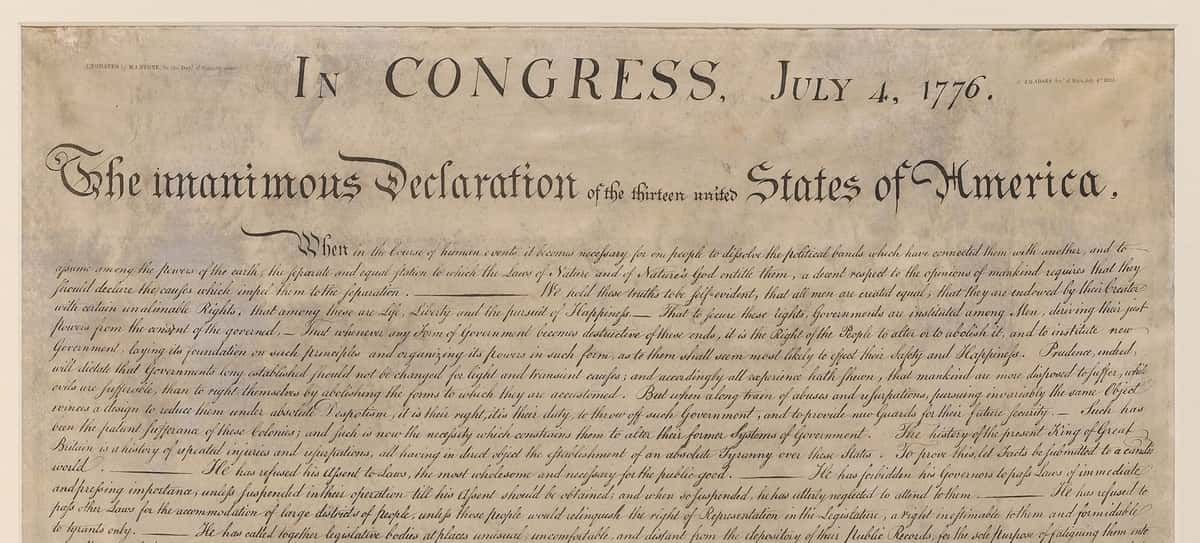 ENGRAVED by W.I.STONE, for the Dept. of State, by order
IN CONGRESS, JULY 4, 1776.
of J.Q.ADAMS Secy. of State, July 4th 1823.
The unanimous Declaration of the thirteen united States of America,
When in the Course of human events, it becomes necessary for one people to dissolve the political bands which have connected them with another, and to
assume among the powers of the earth, the separate and equal station to which the Laws of Nature and of Nature's God entitle them, a decent respect to the opinions of mankind requires that they
should declare the causes which impel them to the separation. ——— We hold these truths to be self-evident, that all men are created equal, that they are endowed by their Creator
with certain unalienable Rights, that among these are Life, Liberty and the pursuit of Happiness — That to secure these rights, Governments are instituted among Men, deriving their just
powers from the consent of the governed, — That whenever any Form of Government becomes destructive of these ends, it is the Right of the People to alter or to abolish it, and to institute new
Government, laying its foundation on such principles and organizing its powers in such form, as to them shall seem most likely to effect their Safety and Happiness. Prudence, indeed,
will dictate that Governments long established should not be changed for light and transient causes; and accordingly all experience hath shewn, that mankind are more disposed to suffer, while
evils are sufferable, than to right themselves by abolishing the forms to which they are accustomed. But when a long train of abuses and usurpations, pursuing invariably the same Object
evinces a design to reduce them under absolute Despotism, it is their right, it is their duty, to throw off such Government, and to provide new Guards for their future security. — Such has
been the patient sufferance of these Colonies; and such is now the necessity which constrains them to alter their former Systems of Government. The history of the present King of Great
Britain is a history of repeated injuries and usurpations, all having in direct object the establishment of an absolute Tyranny over these States. To prove this, let Facts be submitted to a candid
world. ——— He has refused his Assent to Laws, the most wholesome and necessary for the public good. ——— He has forbidden his Governors to pass Laws of immediate
and pressing importance, unless suspended in their operation till his Assent should be obtained; and when so suspended, he has utterly neglected to attend to them. ——— He has refused to
pass other Laws for the accommodation of large districts of people, unless those people would relinquish the right of Representation in the Legislature, a right inestimable to them and formidable
to tyrants only. ——— He has called together legislative bodies at places unusual, uncomfortable, and distant from the depository of their Public Records, for the sole purpose of fatiguing them into